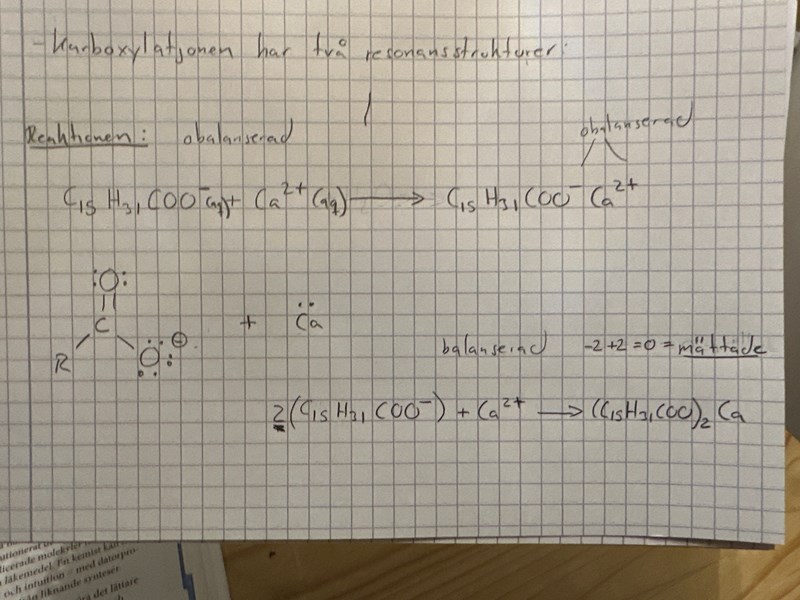 - Karboxylatjonen har två resonansstrukturer:
obalanserad
Reaktionen: obalanserad
C₁₅H₃₁COO⁻(aq) + Ca²⁺(aq) → C₁₅H₃₁COO⁻ Ca²⁺
:O:
C
+ Ca
R
O ⊖
balanserad -2+2=0 = mättade
2(C₁₅H₃₁COO⁻) + Ca²⁺ → (C₁₅H₃₁COO)₂Ca
licerade molekyler
läkemedel. En kemist kan
och intuition – med datorpro-
liknande synteser
det lättare